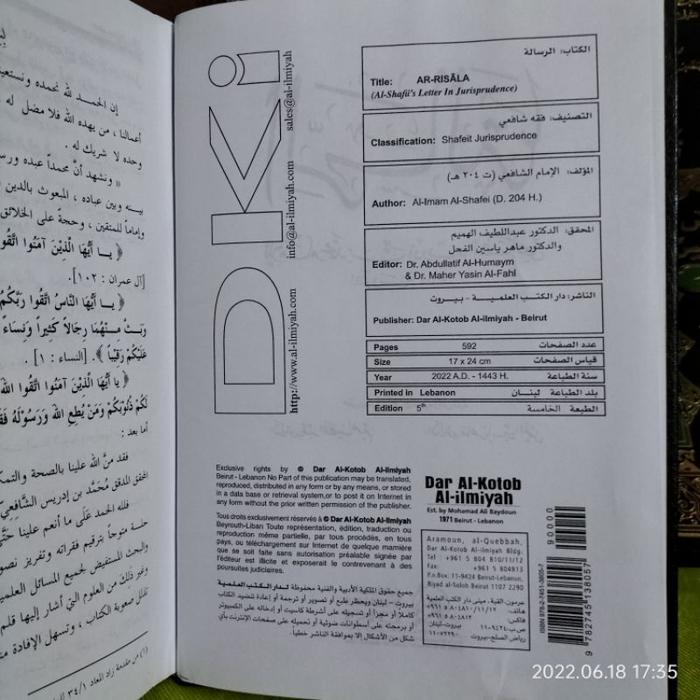 الكتاب: الرسالة
Title: AR-RISĀLA
(Al-Shafii's Letter In Jurisprudence)
التصنيف: فقه شافعي
Classification: Shafeit Jurisprudence
المؤلف: الإمام الشافعي (ت ٢٠٤ هـ)
Author: Al-Imam Al-Shafei (D. 204 H.)
المحقق: الدكتور عبداللطيف الهميم
والدكتور ماهر ياسين الفحل
Editor: Dr. Abdullatif Al-Humaym
& Dr. Maher Yasin Al-Fahl
الناشر: دار الكتب العلميـة - بيروت
Publisher: Dar Al-Kotob Al-ilmiyah - Beirut
Pages 592 عدد الصفحات
Size 17 x 24 cm قياس الصفحات
Year 2022 A.D. - 1443 H. سنة الطباعة
Printed in Lebanon بلد الطباعة لبنـان
Edition 5th الطبعة الخامسة
DKi
http://www.al-ilmiyah.com info@al-ilmiyah.com sales@al-ilmiyah.com
Exclusive rights by © Dar Al-Kotob Al-ilmiyah
Beirut - Lebanon No Part of this publication may be translated,
reproduced, distributed in any form or by any means, or stored
in a data base or retrieval system,or to post it on Internet in
any form without the prior written permission of the publisher.
Tous droits exclusivement réservés à © Dar Al-Kotob Al-ilmiyah
Beyrouth-Liban Toute représentation, édition, traduction ou
reproduction même partielle, par tous procédés, en tous
pays, ou téléchargement sur Internet de quelque manière
que se soit faite sans autorisation préalable signée par
l'éditeur est illicite et exposerait le contrevenant à des
poursuites judiciaires.
جميع حقوق الملكية الأدبية والفنية محفوظة لـدار الـكتب العلمـيـة
بيروت - لبنان ويحظر طبع أو تصوير أو ترجمة أو إعادة تنضيد الكتاب
كاملاً أو مجزأ أو تسجيله على أشرطة كاسيت أو إدخاله على الكمبيوتر
أو برمجته على أسطوانات ضوئية أو تحميله على صفحات الإنترنت بأي
شكل من الأشكال إلا بموافقة الناشر خطياً.
Dar Al-Kotob
Al-ilmiyah
Est. by Mohamad Ali Baydoun
1971 Beirut - Lebanon
Aramoun, al-Quebbah,
Dar Al-Kotob Al-ilmiyah Bldg.
Tel +961 5 804 810/11/12
Fax: +961 5 804813
P.o.Box: 11-9424 Beirut-Lebanon,
Riyad al-Soloh Beirut 1107 2290
عرمون، القبة، مبنى دار الكتب العلمية
هاتف: ٩٦١ ٥ ٨٠٤٨١٠/١١/١٢+
فاكس: ٩٦١ ٥ ٨٠٤٨١٣+
ص.ب: ٩٤٢٤-١١ بيروت-لبنان
رياض الصلح-بيروت ١١٠٧٢٢٩٠
90000
ISBN 978-2-7451-3805-7
9 782745 138057
إن الحمـد لله نحمده ونستعي
أعمالنا ، من يهده الله فلا مضل له
وحده لا شريك له .
« ونشهد أنَّ محمداً عبده ورس
بينه وبين عباده ، المبعوث بالدين
وإماماً للمتقين ، وحجة على الخلائق
﴿ يـا أَيُّهَا الَّذِينَ آمَنُوا اتَّقُو
[آل عمران : ١٠٢].
﴿ يـا أَيُّهَا النَّاسُ اتَّقُوا رَبَّكُم
وَبَثَّ مِنْهُمَا رِجَالاً كَثِيراً وَنِسَاءً
عَلَيْكُمْ رَقِيباً ﴾. [النساء : ١] .
﴿ يا أَيُّهَا الَّذِينَ آمَنُوا اتَّقُوا اللهَ
لَكُمْ ذُنُوبَكُمْ وَمَنْ يُطِعِ اللهَ وَرَسُولَهُ فَقَ
أما بعد :
فقد منَّ الله علينا بالصحة والتمك
المحقق المدقق مُحَمَّد بن إدريس الشَّافِعِي
فلله الحمد عَلَى ما أنعم علينا حتَّى
حلة متوخياً بترقيم فقراته وتفريز نصو
والبحث المستفيض لجميع المسائل العلمي
وغير ذَلِكَ من العلوم التي أشار إليها قلم
تقلل صعوبة الكتاب ، وتسهل الإفادة من
(١) من مقدمة زاد المعاد ٣٤/١
2022.06.18 17:35